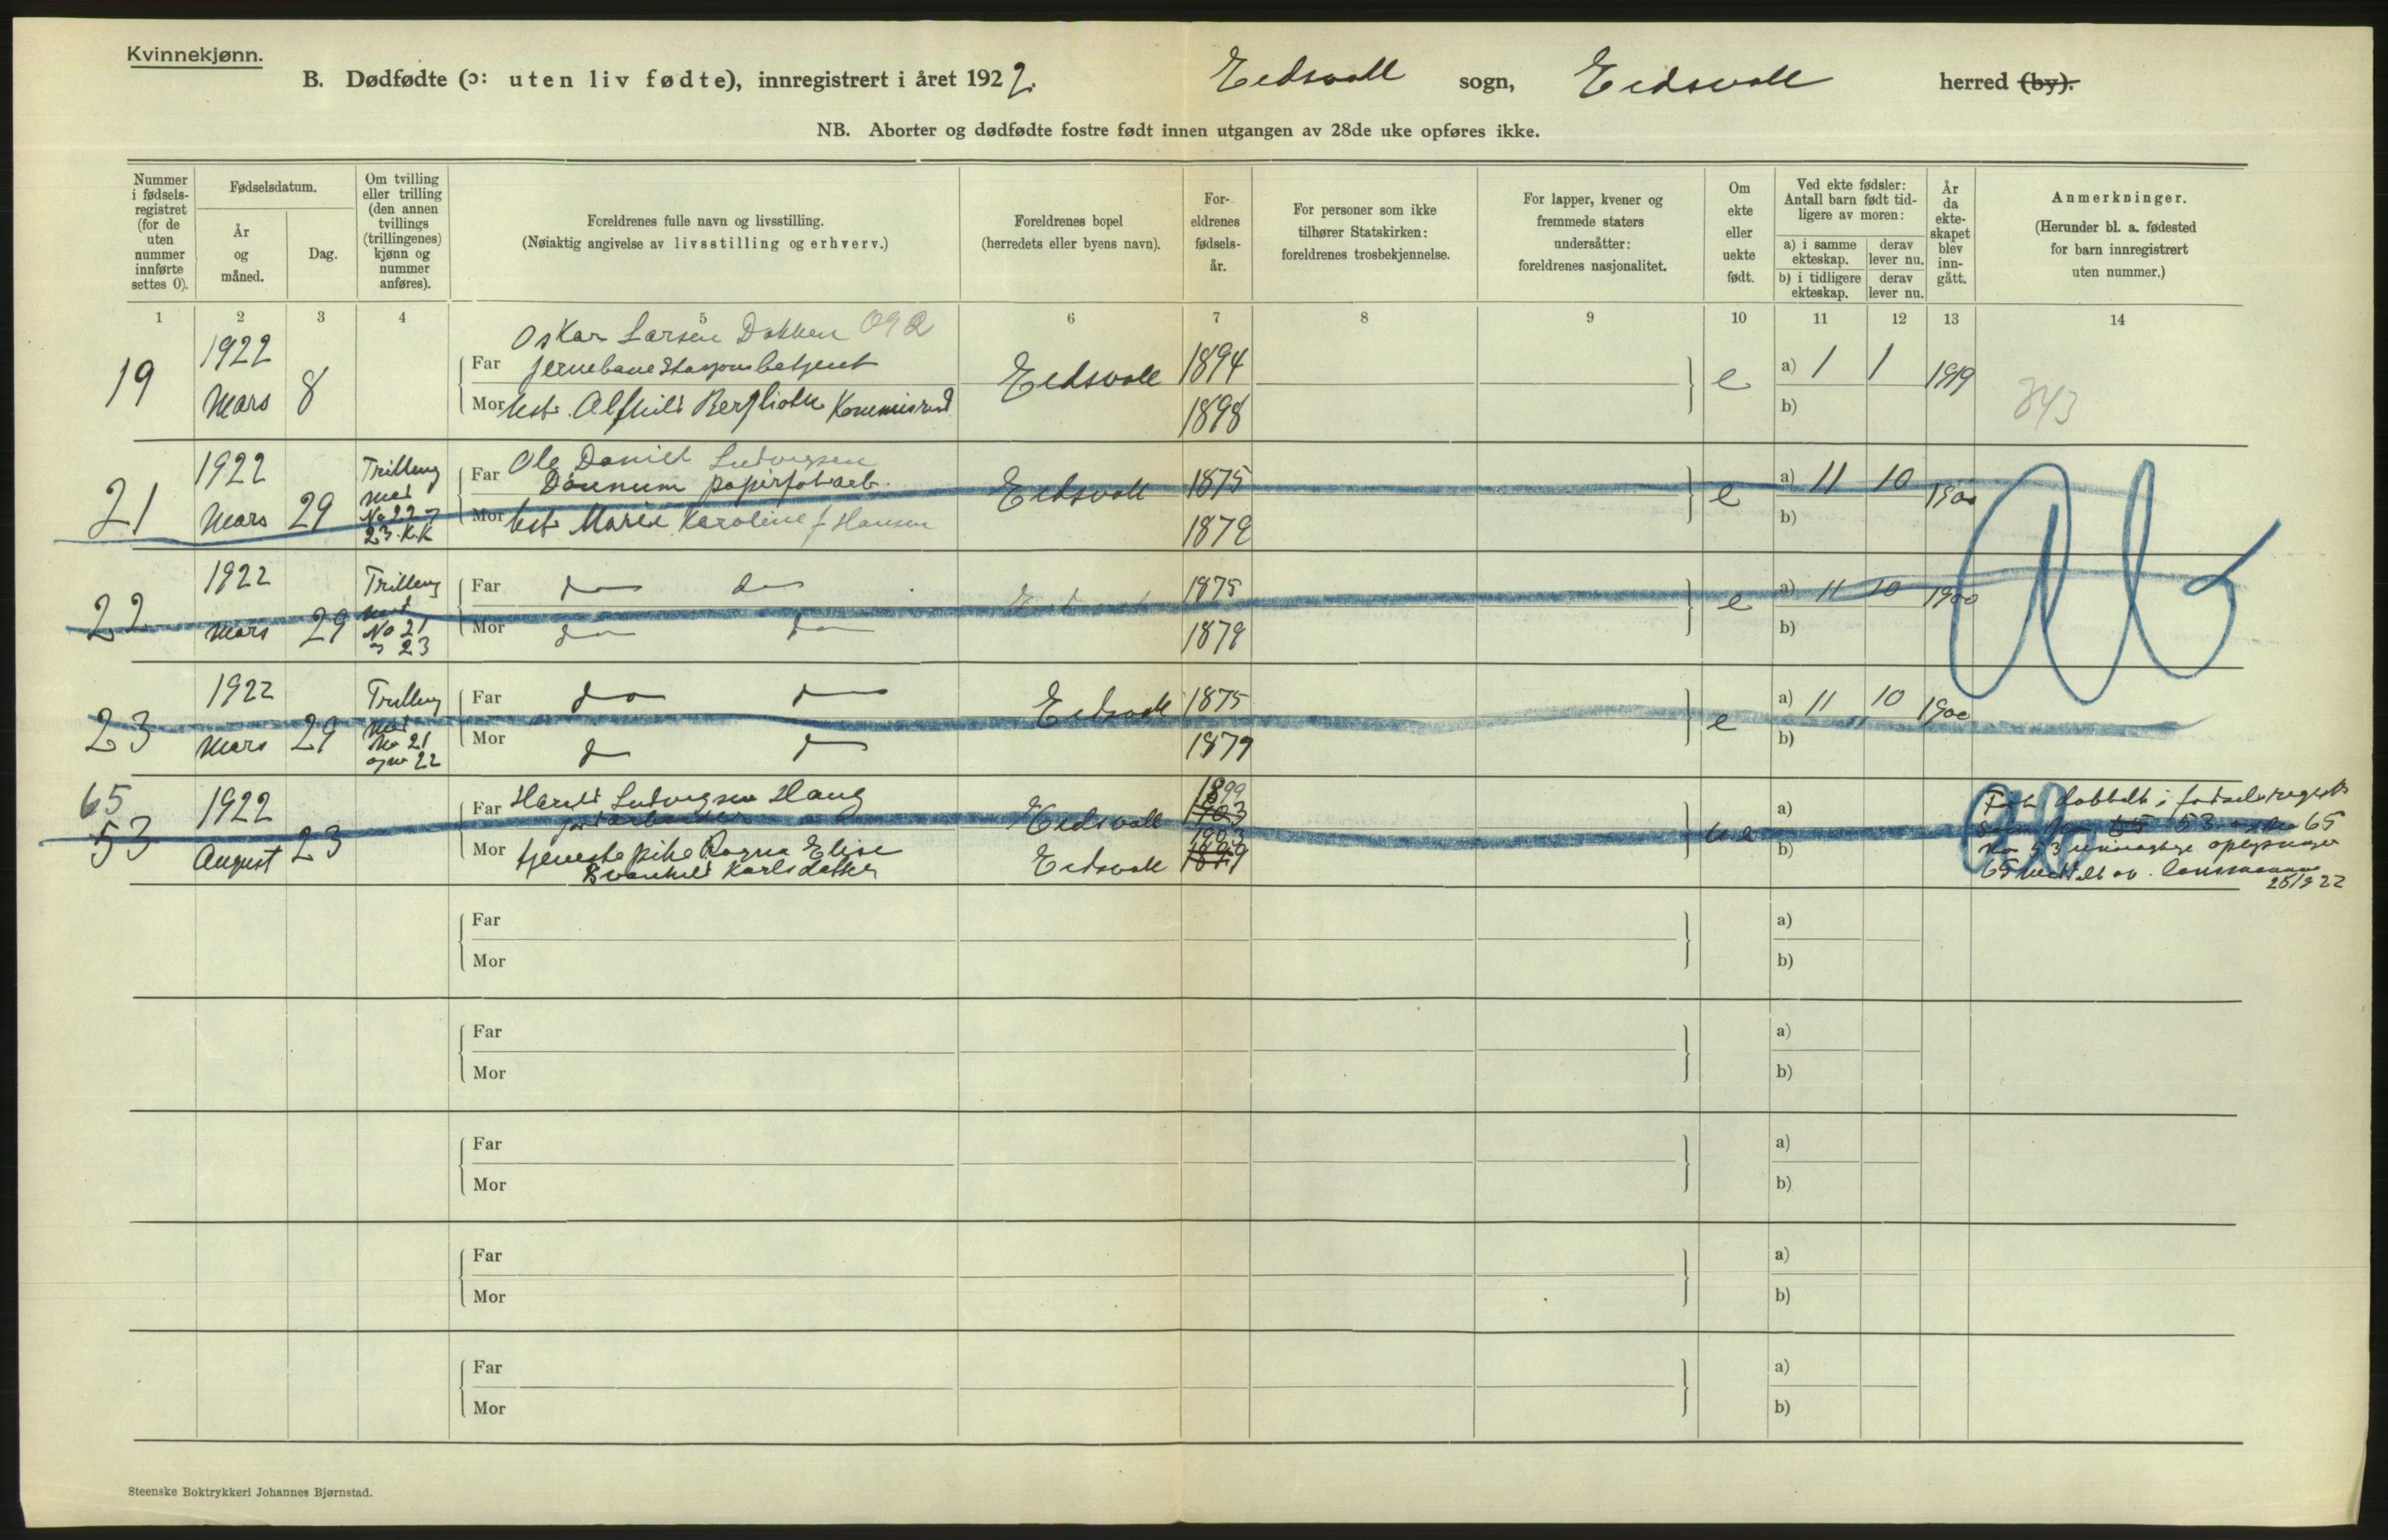 Kvinnekjønn.
B. Dødfødte (ɔ: uten liv fødte), innregistrert i året 1922. Eidsvoll sogn, Eidsvoll herred (by).
NB. Aborter og dødfødte fostre født innen utgangen av 28de uke opføres ikke.
Nummer i fødsels-registret (for de uten nummer innførte settes 0).
Fødselsdatum.
År og måned.
Dag.
Om tvilling eller trilling (den annen tvillings (trillingenes) kjønn og nummer anføres).
Foreldrenes fulle navn og livsstilling.
(Nøiaktig angivelse av livsstilling og erhverv.)
Foreldrenes bopel
(herredets eller byens navn).
For-eldrenes fødsels-år.
For personer som ikke tilhører Statskirken: foreldrenes trosbekjennelse.
For lapper, kvener og fremmede staters undersåtter: foreldrenes nasjonalitet.
Om ekte eller uekte født.
Ved ekte fødsler: Antall barn født tid-ligere av moren:
a) i samme ekteskap.
derav lever nu.
b) i tidligere ekteskap.
derav lever nu.
År da ekte-skapet blev inn-gått.
Anmerkninger.
(Herunder bl. a. fødested for barn innregistrert uten nummer.)
1 2 3 4 5 6 7 8 9 10 11 12 13 14
19 1922 Mars 8
Far Oskar Larsen Dokken
jernbanestasjonsbetjent
Mor hust. Alfhild Bergliot
Eidsvoll 1894 1898 e a) 1 1 1919
b)
843
21 1922 Mars 29
Trilling med No 22 og 23. K.K
Far Ole Daniel Ludvigsen
Dønnum papirfabarb.
Mor hust Marie Karoline f Hansen
Eidsvoll 1875 1879 e a) 11 10 1900
b)
22 1922 Mars 29
Trilling med No 21 og 23
Far do do
Mor do do
Eidsvoll 1875 1879 e a) 11 10 1900
b)
23 1922 Mars 29
Trilling med No 21 og no 22
Far do do
Mor do do
Eidsvoll 1875 1879 e a) 11 10 1900
b)
65
53 1922 August 23
Far Harald Ludvigsen Haug
jordarbeider
Mor tjenestepike Ragna Elise
Svanhild Karlsdatter
Eidsvoll
Eidsvoll
1899
1903
1903
ue
a)
b)
Ført dobbelt i fødselsregistr
som No 53 og No 65
No 53 unøiagtige oplysninger
65 meddelt av lensmannen
25/9 22
Far
Mor
a)
b)
Far
Mor
a)
b)
Far
Mor
a)
b)
Far
Mor
a)
b)
Far
Mor
a)
b)
Steenske Boktrykkeri Johannes Bjørnstad.